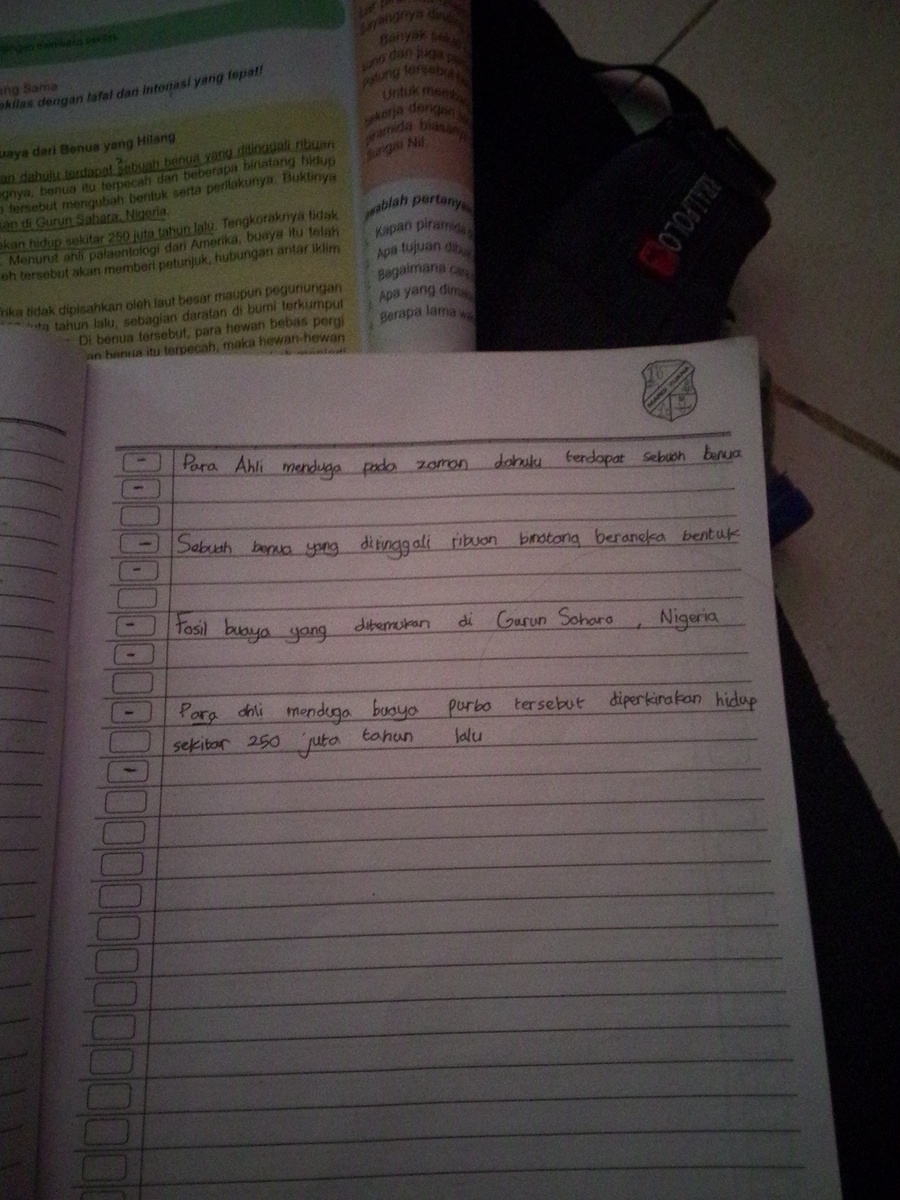 ang Sama
dengan lafal dan intonasi yang tepat!
dari Benua yang Hilang
dahulu terdapat sebuah benua yang ditinggali ribuan
benua itu terpecah dan beberapa binatang hidup
tersebut mengubah bentuk serta perilakunya. Buktinya
di Gurun Sahara, Nigeria.
hidup sekitar 250 juta tahun lalu. Tengkoraknya tidak
Menurut ahli palaentologi dari Amerika, buaya itu telah
tersebut akan memberi petunjuk, hubungan antar iklim
tidak dipisahkan oleh laut besar maupun pegunungan
juta tahun lalu, sebagian daratan di bumi terkumpul
Di benua tersebut, para hewan bebas pergi
benua itu terpecah, maka hewan-hewan
Banyak
dan juga
patung tersebut
Untuk
dengan
piramida
Sungai Nil.
Kapan piramida
Apa tujuan
Bagaimana
Apa yang
Berapa lama
POLO
RALPH
- Para Ahli menduga pada zaman dahulu terdapat sebuah benua
-
- Sebuah benua yang ditinggali ribuan binatang beraneka bentuk
-
- Fosil buaya yang ditemukan di Gurun Sahara , Nigeria
-
- Para ahli menduga buaya purba tersebut diperkirakan hidup
sekitar 250 juta tahun lalu
-